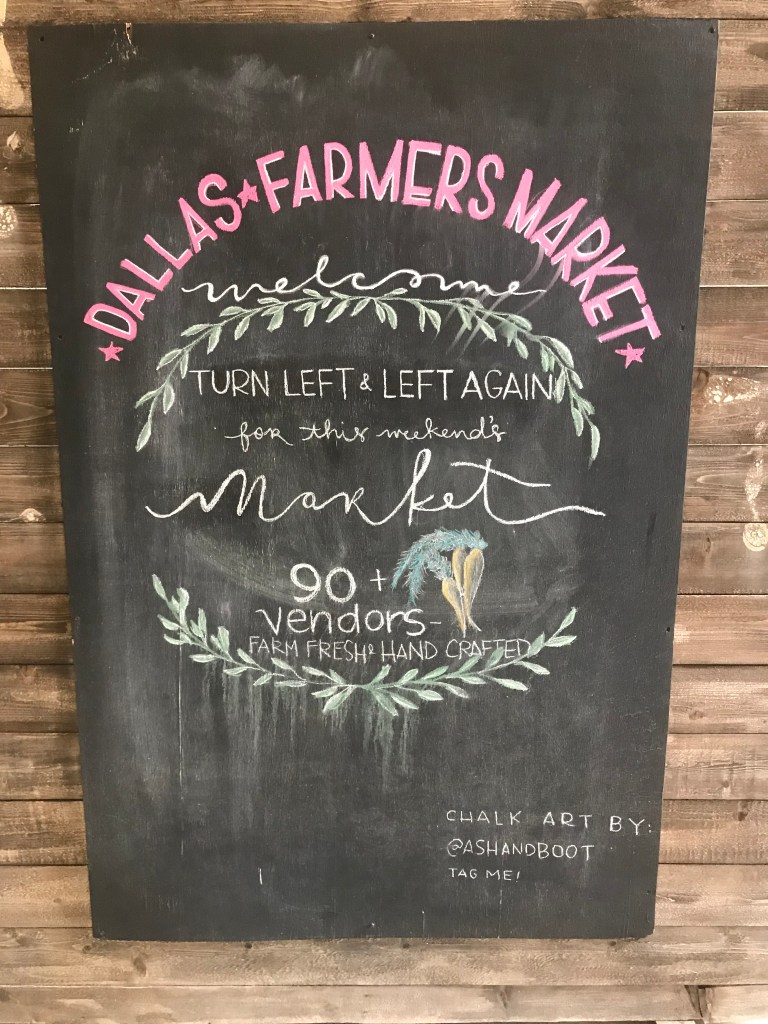 DALLAS★FARMERS MARKET
welcome
TURN LEFT & LEFT AGAIN
for this weekend's
Market
90+
vendors-
FARM FRESH & HAND CRAFTED
CHALK ART BY:
@ASHANDBOOT
TAG ME!